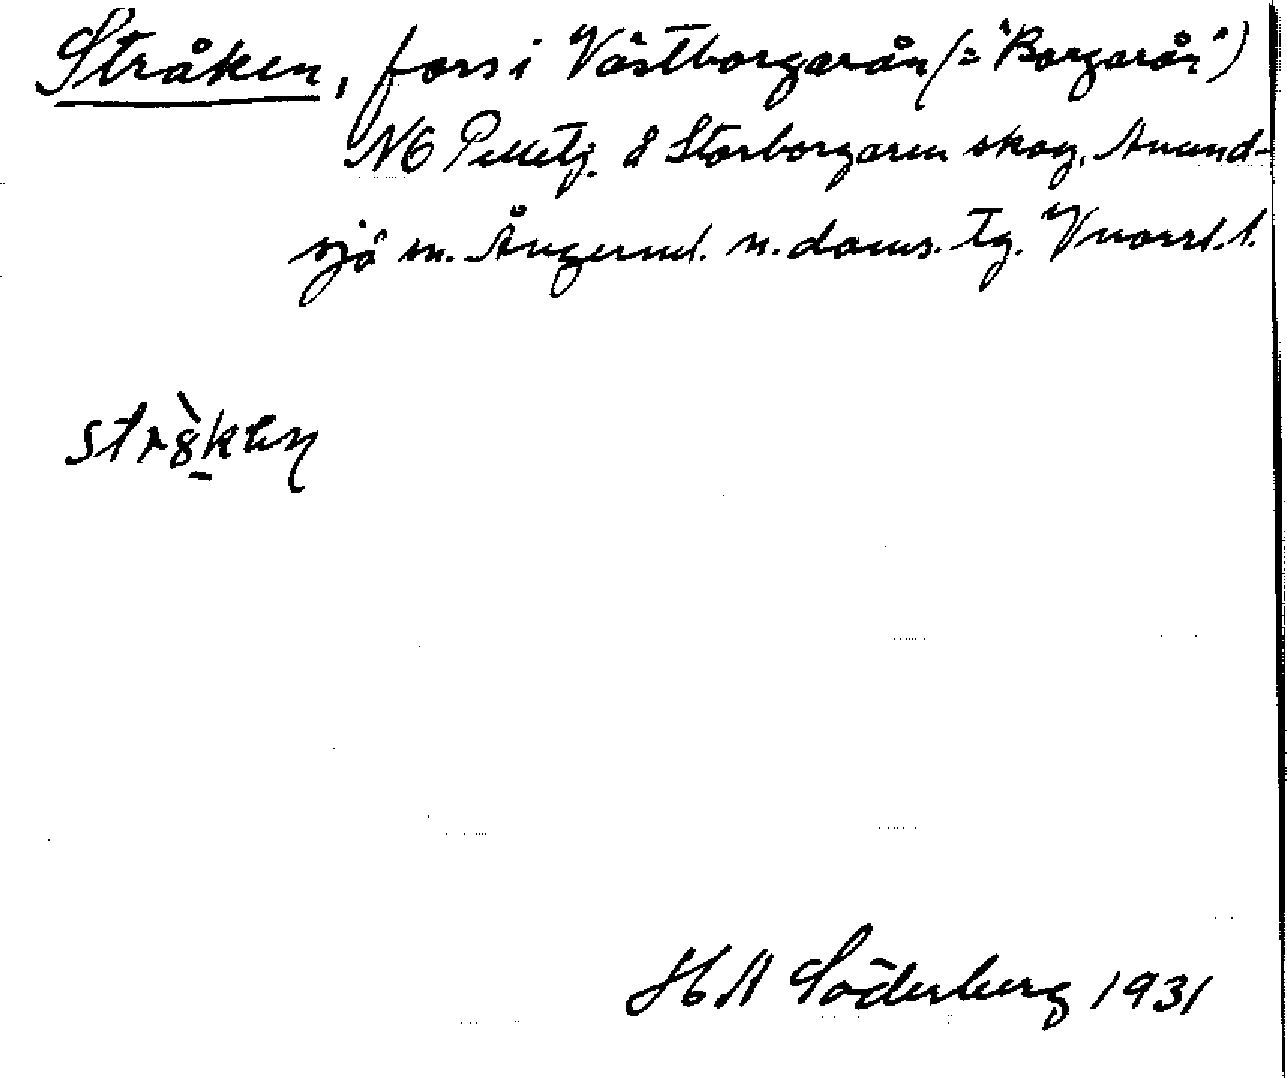 Stråken, fors i Västborgarån (= "Borgarån")
NO Pelletj. å Storborgaren skog, Anund-
sjö sn. Ångerml. n. doms. tg. Vnorrl. l.
HA Söderberg 1931